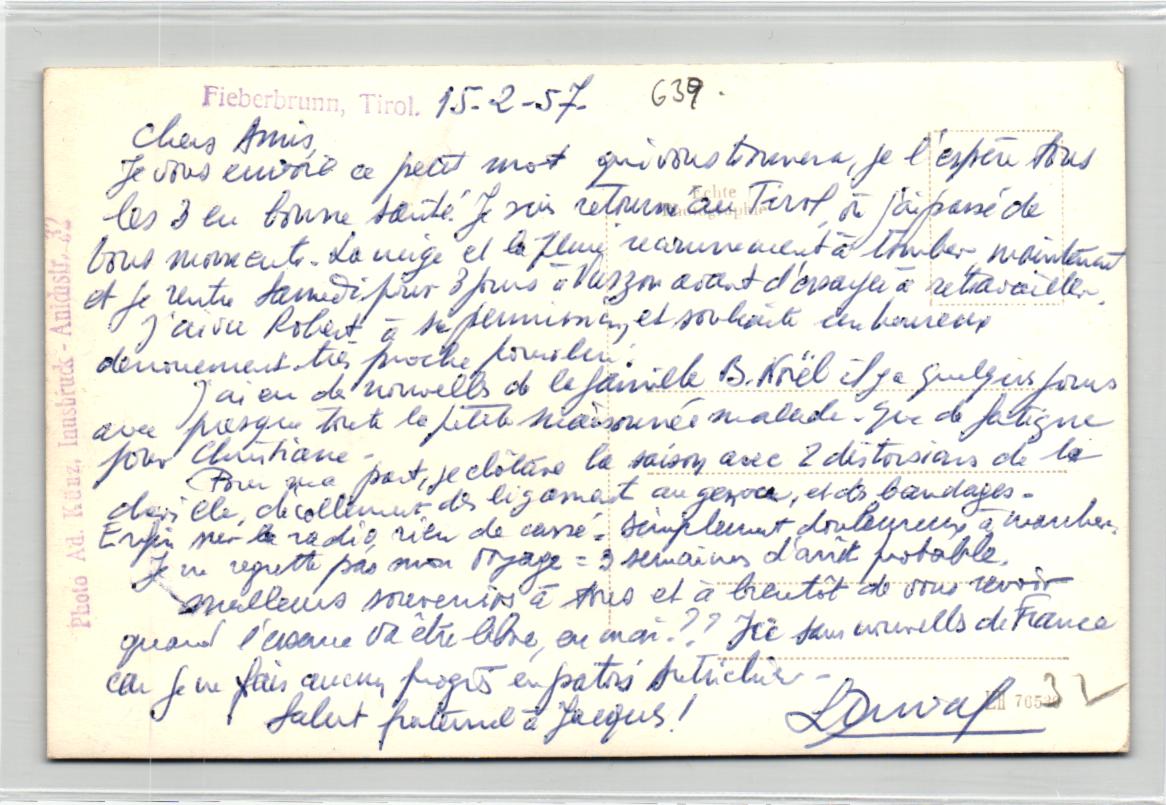 Fieberbrunn, Tirol. 15-2-57. 639.
Chers Amis,
Je vous envoie ce petit mot qui vous trouvera, je l'espère tous
les 3 en bonne santé. Je suis retourné au Tirol, où j'ai passé de
bons moments. La neige et la pluie recommencent à tomber maintenant
et je rentre samedi pour 3 jours à avant d'essayer à retravailler.
J'ai vu Robert à sa permission, et souhaite un heureux
dénouement très proche pour lui.
J'ai eu de nouvelles de la famille B. Noël il y a quelques jours
avec presque toute la petite maisonnée malade - Que de fatigue
pour Christiane -
Pour ma part, je clôture la saison avec 2 distorsions de la
cheville, décollement des ligament au genou, et des bandages -
Enfin sur la radio, rien de cassé - simplement douloureux à marcher.
Je ne regrette pas mon voyage = 3 semaines d'arrêt probable.
Meilleurs souvenirs à tous et à bientôt de vous revoir
quand l'essence va être libre, en mai ?? Ici sans nouvelles de France
car je ne fais aucun progrès en patois Autrichien -
Salut fraternel à Jacques !
Echte
Photographie
Photo Ad. Künz, Innsbruck - Anichstr. 32
32